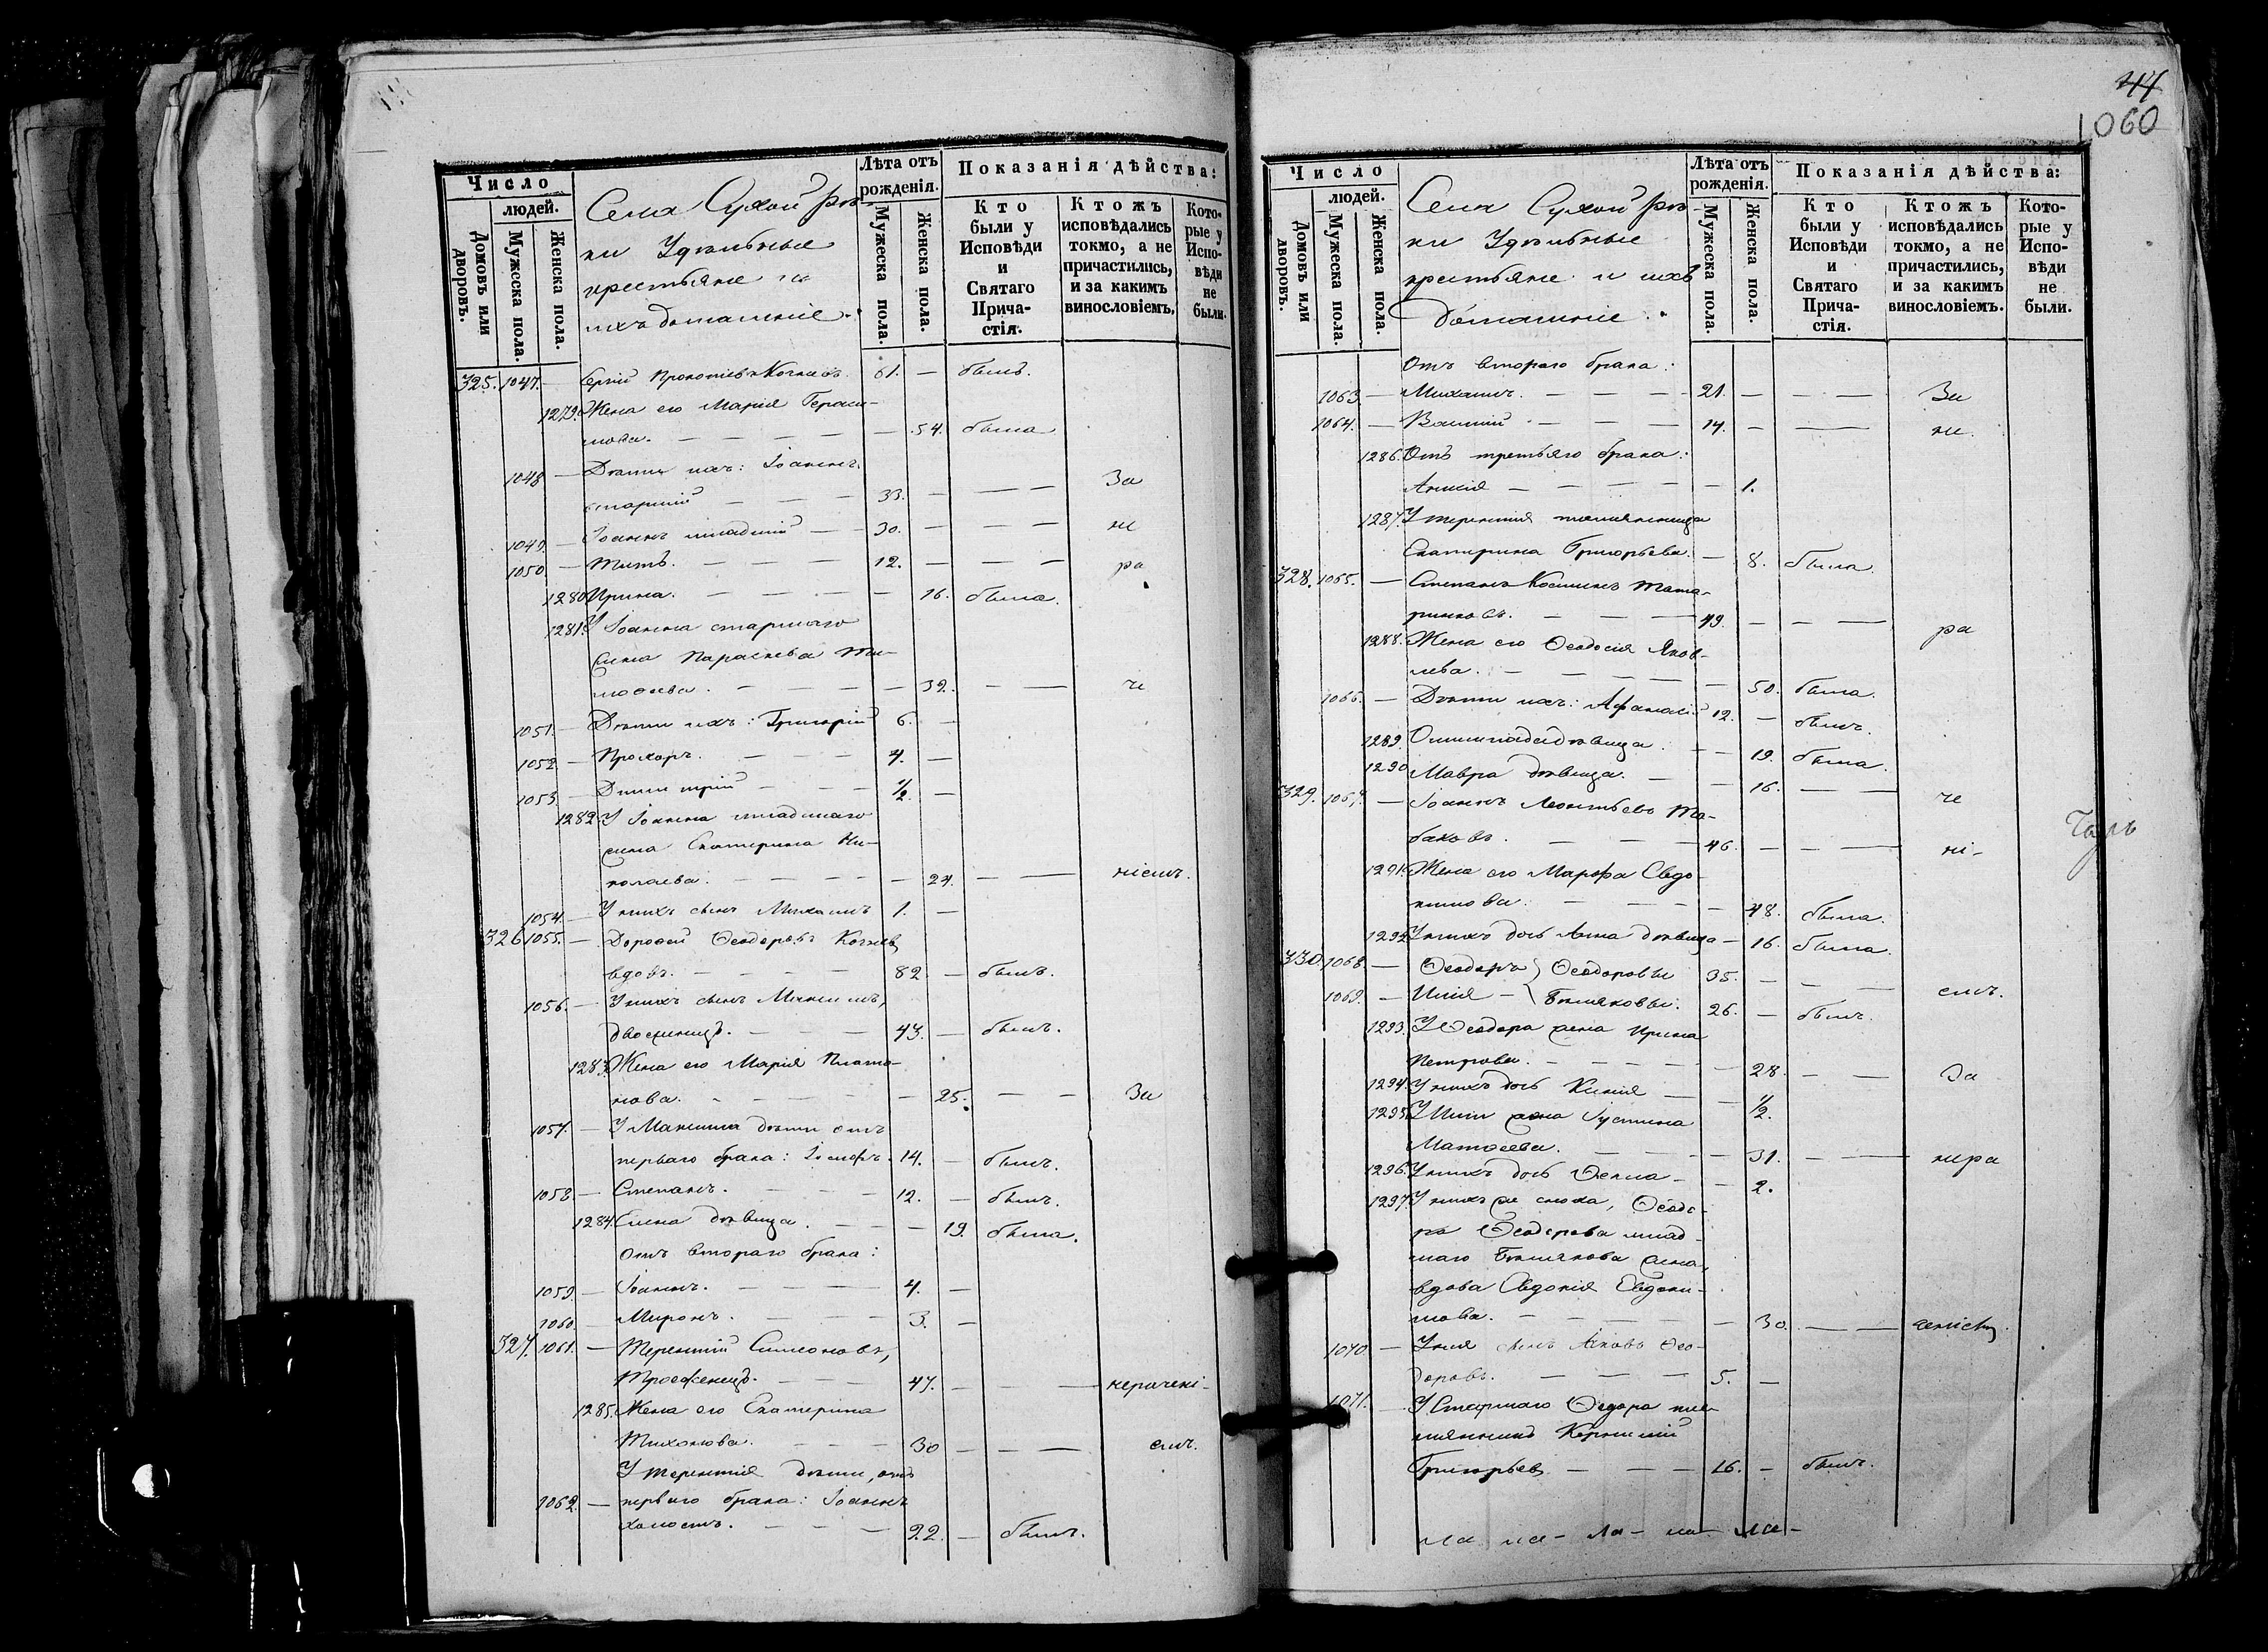 Число
людей.
Домовъ или дворовъ.
Мужеска пола.
Женска пола.
Села Сухой рѣч-
ки Удѣльные
крестьяне и
ихъ домашніе.
Лѣта отъ рожденія.
Мужеска пола.
Женска пола.
Показанія дѣйства:
Кто были у Исповѣди и Святаго Прича-стія.
Ктожъ исповѣдались токмо, а не причастились, и за какимъ винословіемъ.
Кото-рые у Испо-вѣди не были.
325. 1047. — Сергій Прокопіевъ 61. — былъ.
1279. Жена его Марія Гераси-
мова. — — — — — 54. была
1048 — Дѣти ихъ: Іоаннъ
старшій — — — 33. — — — За
1049. — Іоаннъ младшій — 30. — — — не
1050 — Титъ. — — — 12. — — — ра
1280 Ирина. — — — — 16. была.
1281. У Іоанна старшаго
жена Параскева Ти-
моѳеева. — — — — 32. — — че
1051. — Дѣти ихъ: Григорій 6. —
1052. — Прохоръ. — — — 4. —
1053. — Димитрій — — — 1/2. —
1282. У Іоанна младшаго
жена Екатерина Ни-
колаева. — — — — 24. — — ніемъ.
1054. — У нихъ сынъ Михаилъ 1. —
326 1055. — Дороѳей Ѳеодоровъ
вдовъ. — — — — 82. — былъ.
1056. — У нихъ сынъ Максимъ,
двоеженецъ. — — — 43. — былъ.
1283. Жена его Марія Плато-
нова. — — — — — 25. — — За
1057. — У Максима дѣти отъ
перваго брака: Іосифъ. 14. — былъ.
1058. — Степанъ. — — — 12. — былъ.
1284. Елена дѣвица. — — — 19. была.
Отъ втораго брака:
1059. — Іоаннъ. — — — 4. —
1060. — Миронъ. — — — 3. —
327. 1061. — Терентій Симеоновъ,
троеженецъ. — — — 47. — — — нераченi-
1285. Жена его Екатерина
Тихонова. — — — 30 — — — емъ.
У Терентія дѣти, отъ
1062. — перваго брака: Іоаннъ
холостъ. — — — 22. — былъ.
44
1060
Число
людей.
Домовъ или дворовъ.
Мужеска пола.
Женска пола.
Села Сухой рѣч
ки Удѣльные
крестьяне и ихъ
домашніе.
Лѣта отъ рожденія.
Мужеска пола.
Женска пола.
Показанія дѣйства:
Кто были у Исповѣди и Святаго Прича-стія.
Ктожъ исповѣдались токмо, а не причастились, и за какимъ винословіемъ.
Кото-рые у Испо-вѣди не были.
Отъ втораго брака:
1063. — Михаилъ. — — — 21. — — — За
1064. — Василій — — — 14. — — не
1286. Отъ третьяго брака:
— — — — — 1.
1287. У Терентія племянница
Екатерина Григорьева. — 8. была.
328. 1065. — Степанъ Косминъ Тата-
ринковъ. — — — 49. — — — ра
1288. Жена его Ѳеодосія Яков-
лева. — — — — — 50. была.
1066. — Дѣти ихъ: Афанасій 12. — былъ.
1289. Олимпіада дѣвица. — — 19. была.
1290 Мавра дѣвица. — — 16. — — че
329. 1067. — Іоаннъ Леонтьевъ Та-
баковъ. — — — 46. — — — ні-
1291. Жена его Марфа Евдо-
кимова. — — — — 48. была.
1292. У нихъ дочь Анна дѣвица — 16. была.
330. 1068. — Ѳеодоръ } Ѳеодоровы 35. — — — емъ.
1069. — Илія — } Бѣляковы. 26. — былъ.
1293. У Ѳеодора жена Ирина
Петрова. — — — — — 28. — — За
1294. У нихъ дочь Ксенія — — 1/2.
1295. У Иліи жена Іустина
Матѳеева. — — — — 31. — — нера
1296. У нихъ дочь Ѳекла — — 2.
1297. У нихъ же сноха, Ѳеодо-
ра Ѳеодорова млад-
шаго Бѣлякова жена,
вдова Евдокія Евдоки-
мова. — — — — — 30. — —
1070. — У нея сынъ Яковъ Ѳео-
доровъ. — — — 5. —
1071. — У Старшаго Ѳедора пле-
мянникъ
Григорьевъ — — — 16. — былъ.